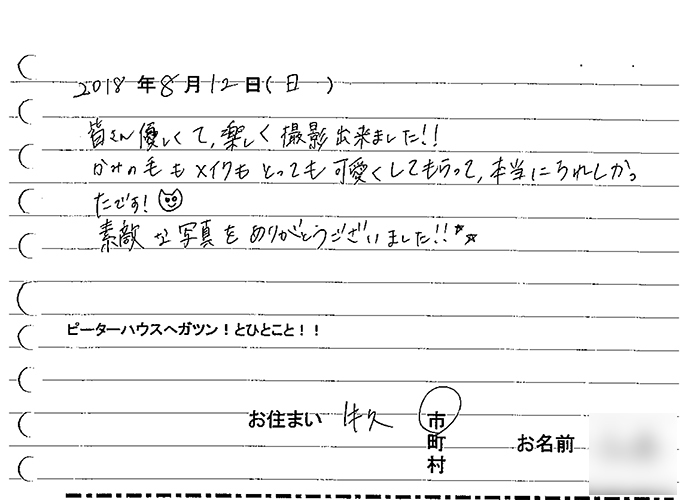 2018年8月12日(日)
皆さん優しくて,楽しく撮影出来ました!!
かみの毛もメイクもとっても可愛くしてもらって,本当にうれしかっ
たです!
素敵な写真をありがとうございました!!
ピーターハウスへガツン!とひとこと!!
お住まい 牛久 市
町
村
お名前